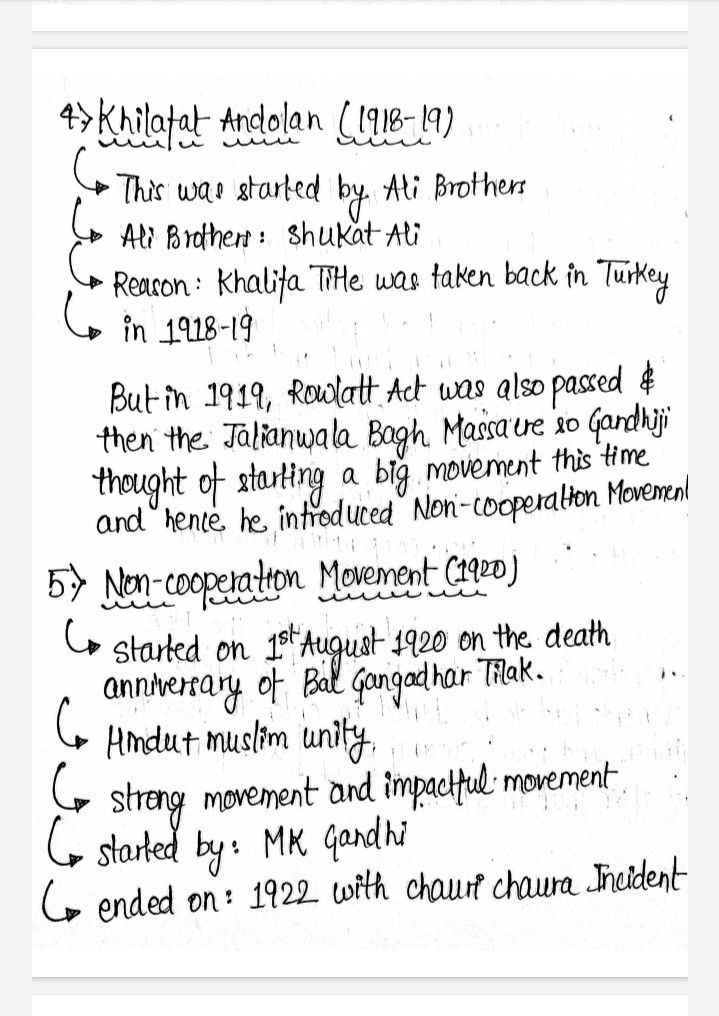 4) Khilafat Andolan (1918-19)
This was started by Ali Brothers
Ali Brothers : Shukat Ali
Reason : Khalifa Title was taken back in Turkey
in 1918-19
But in 1919, Rowlatt Act was also passed &
then the Jalianwala Bagh Massacre so Gandhiji
thought of starting a big movement this time
and hence he introduced Non-cooperation Movement
5) Non-cooperation Movement (1920)
started on 1st August 1920 on the death
anniversary of Bal Gangadhar Tilak.
Hindu + muslim unity.
strong movement and impactful movement
started by : MK Gandhi
ended on : 1922 with chauri chaura Incident